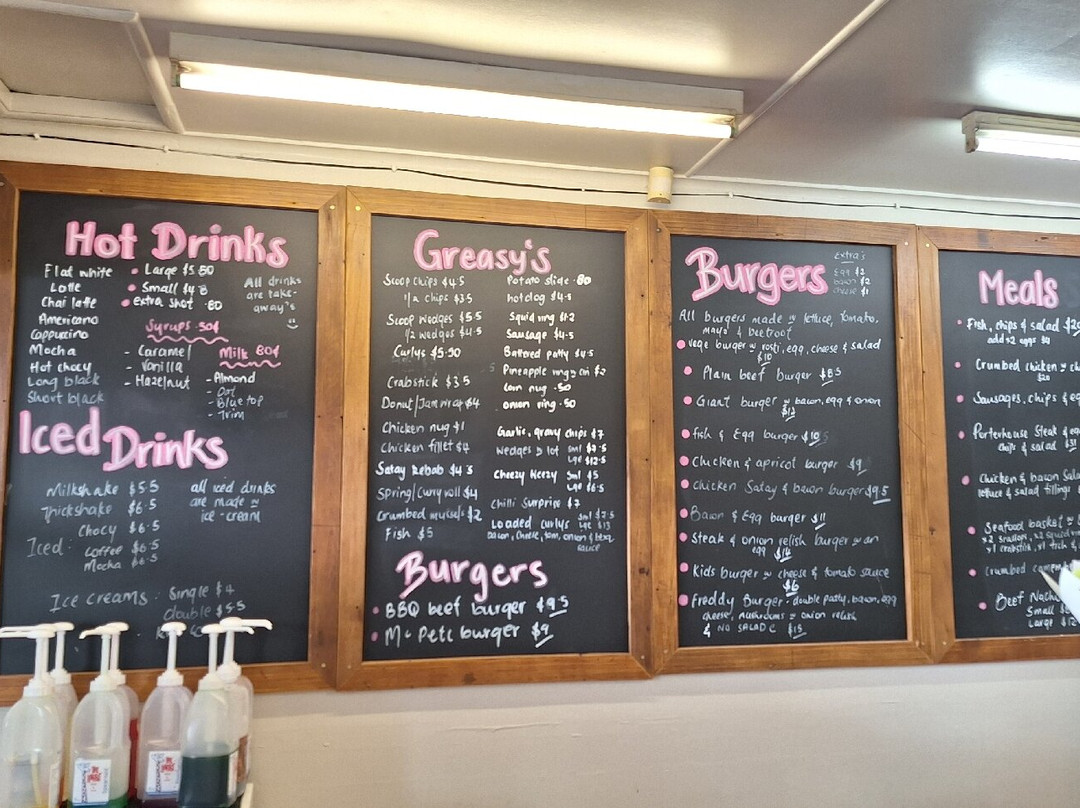 Hot Drinks
Flat white
Latte
Chai latte
Americano
Cappuccino
Mocha
Hot chocy
Long black
Short black
Large $5.50
Small $4.8
extra shot .80
All drinks
are take-
away's
Syrups .50¢
- Caramel
- Vanilla
- Hazelnut
Milk 80¢
- Almond
- Oat
- Blue top
- Trim
Iced Drinks
Milkshake $5.5
Thickshake $6.5
Iced: Chocy $6.5
Coffee $6.5
Mocha $6.5
all iced drinks
are made w
ice-cream
Ice creams: Single $4
Double $5.5
Greasy's
Scoop Chips $4.5
1/2 chips $3.5
Scoop Wedges $5.5
1/2 wedges $4.5
Curlys $5.50
Crabstick $3.5
Donut/Jam wrap $4
Chicken nug $1
Chicken fillet $4
Satay Kebab $4.5
Spring/Curry roll $4
Crumbed mussels $2
Fish $5
Potato slide .80
hotdog $4.5
Squid ring $1.2
Sausage $4.5
Battered patty $4.5
Pineapple ring w cin $2
Corn nug .50
onion ring .50
Garlic, gravy chips $7
Wedges w lot sml $7.5
Lge $12.5
Cheezy Heezy sml $5
Lge $6.5
Chilli Surprise $7
Loaded Curlys sml $7.5
Lge $13
bacon, cheese, tom, onion & bbq
sauce
Burgers
BBQ beef burger $9.5
Mc Pete burger $9
Burgers
Extra's
Egg $2
bacon $2
cheese $1
All burgers made w lettuce, tomato,
mayo & beetroot
Vege burger w rosti, egg, cheese & salad
$10
Plain beef burger $8.5
Giant burger w bacon, egg & onion
$12
fish & Egg burger $10
Chicken & apricot burger $9
Chicken Satay & bacon burger $9.5
Bacon & Egg burger $11
Steak & onion relish burger w an
egg $14
Kids burger w cheese & tomato sauce
$6
Freddy Burger - double patty, bacon, egg
cheese, mushrooms w onion relish
& NO SALAD $15
Meals
Fish, chips & salad $20
add x2 eggs $4
Crumbed chicken w
$20
Sausages, chips & eg
Porterhouse Steak & eg
chips & salad
Chicken & bacon Sala
lettuce & salad fillings
Seafood basket w
x2 scallops, x2 squid
x1 crabstick, x1 fish &
Crumbed camem
Beef Nacho
Small
Large $12